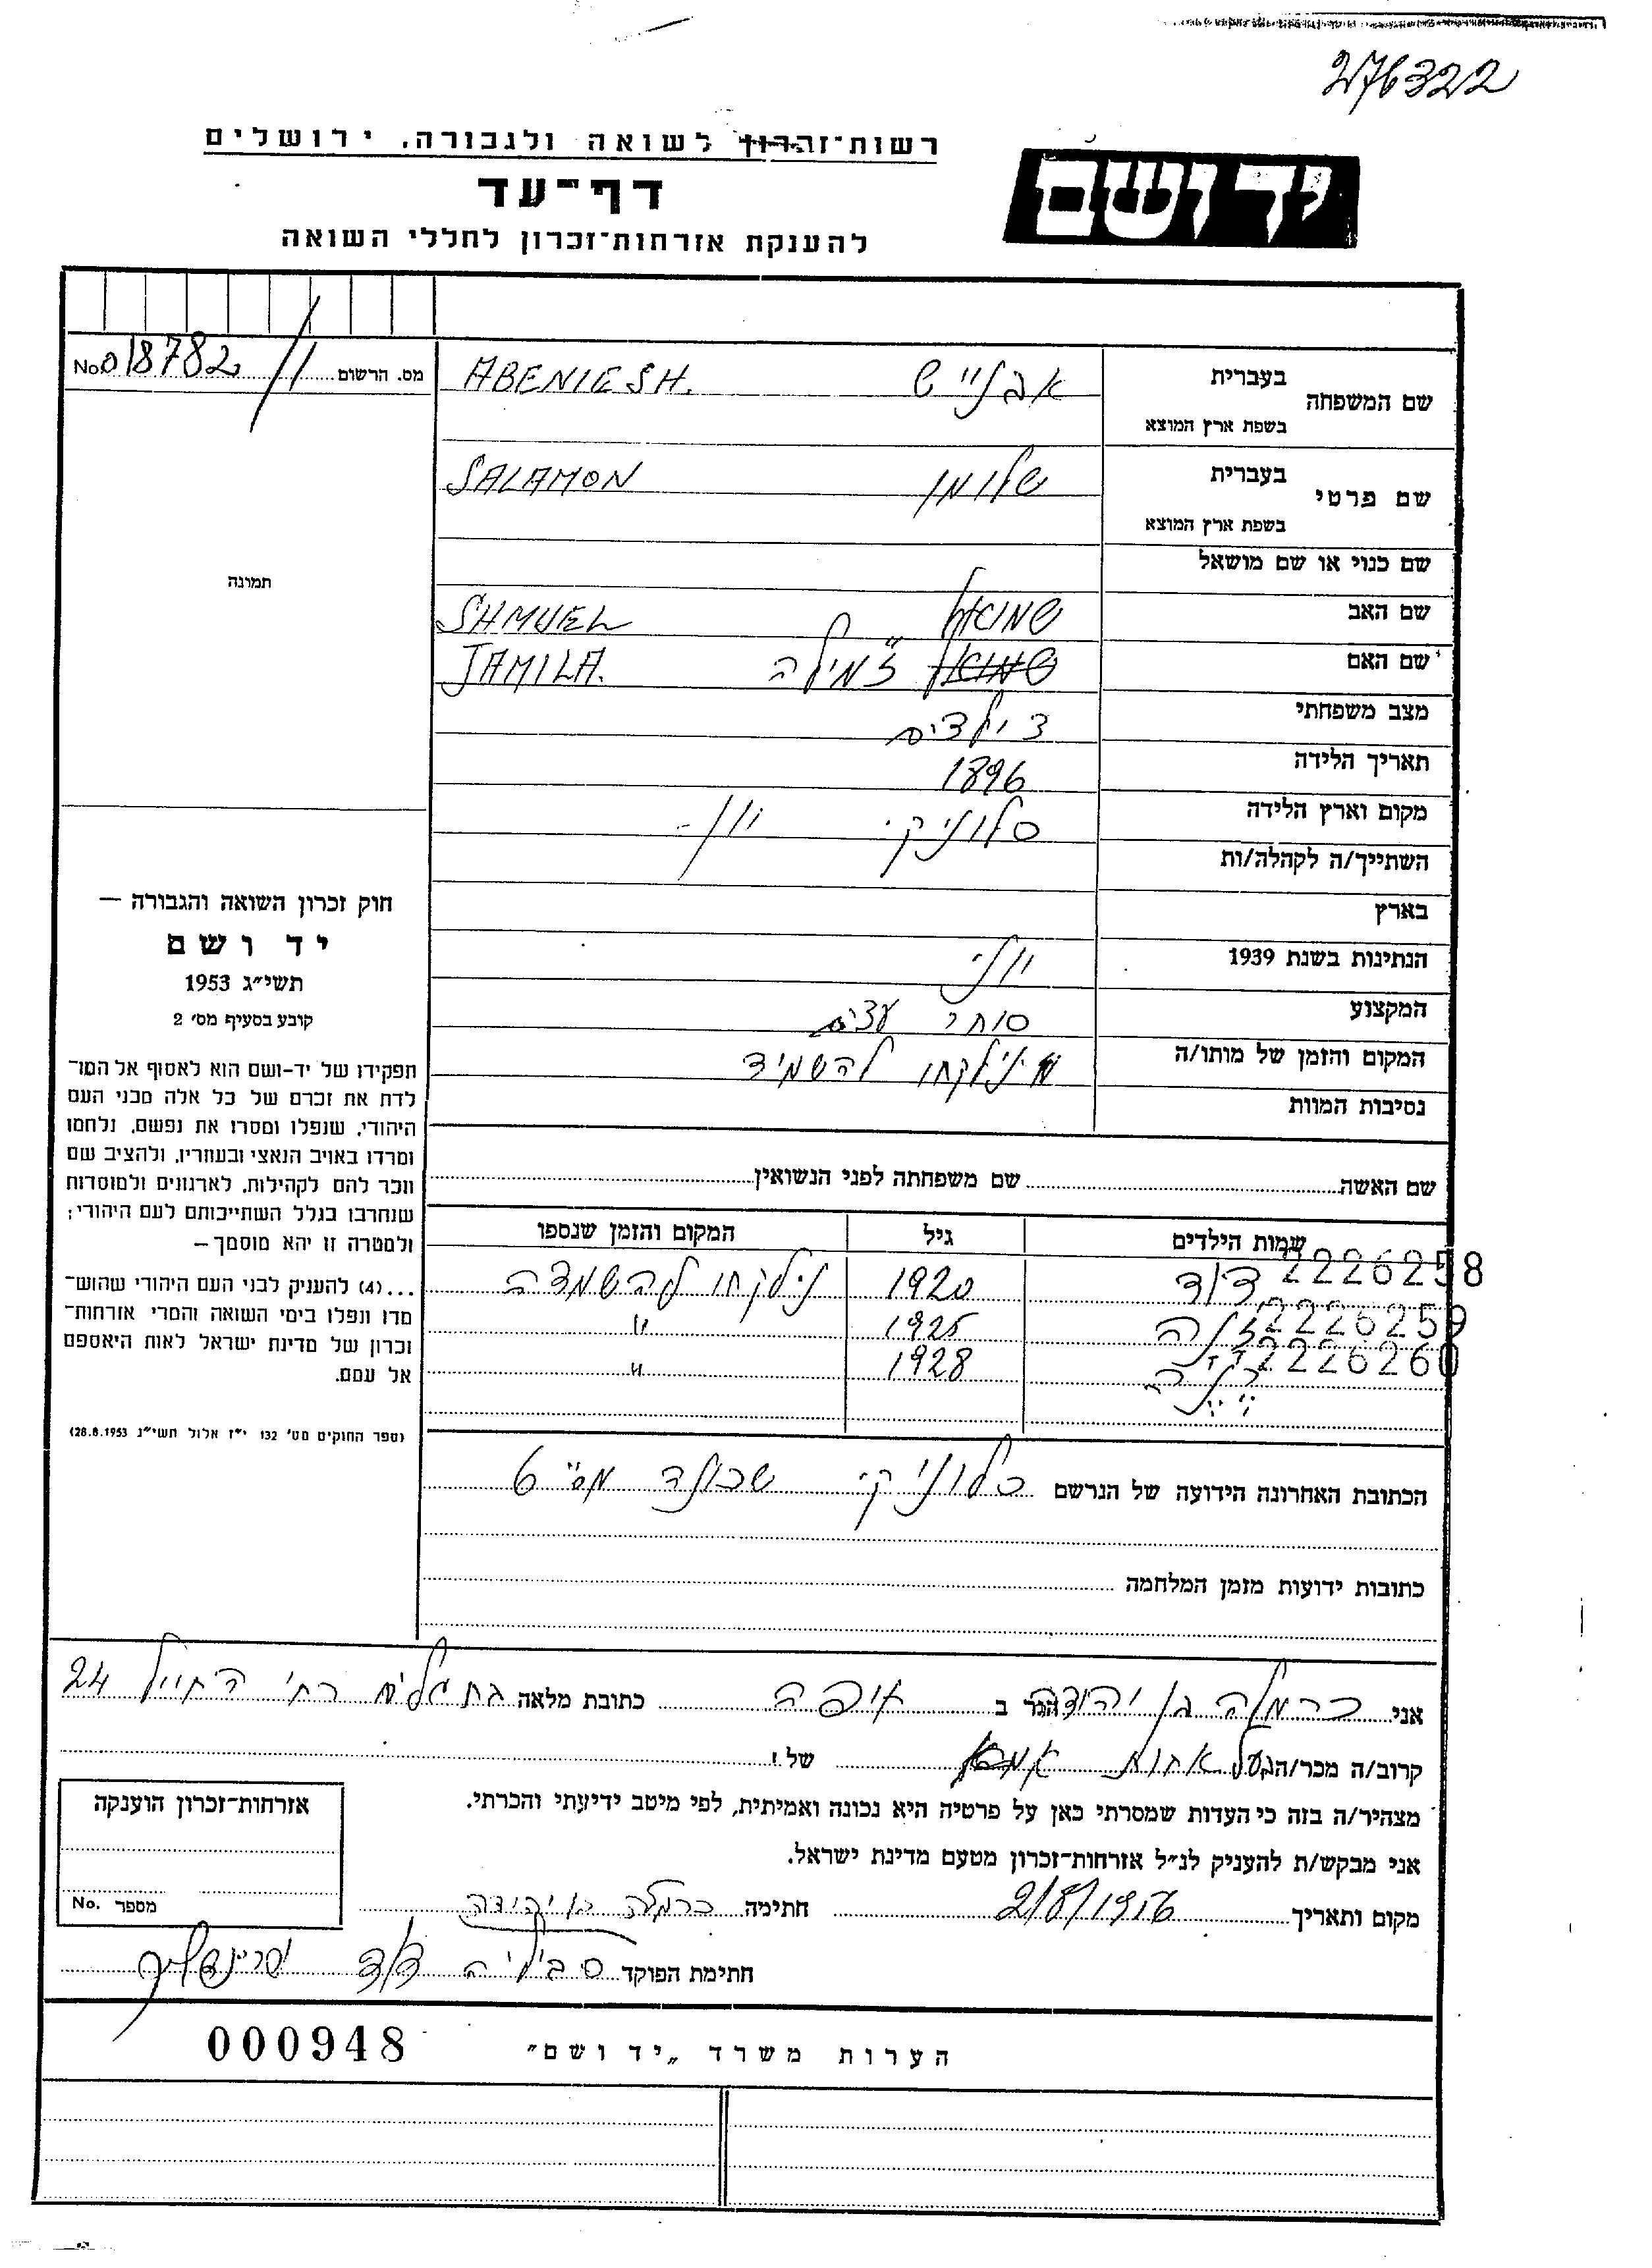 276322
רשות־זכרון לשואה ולגבורה, ירושלים
דף־עד
להענקת אזרחות־זכרון לחללי השואה
יד ושם
מס. הרשום 018782 /1 No
שם המשפחה
בעברית אבנייש ABENIESH.
בשפת ארץ המוצא
שם פרטי
בעברית שלומון SALAMON
בשפת ארץ המוצא
שם כנוי או שם מושאל
שם האב שמואל SHMUEL
שם האם שמואל ז'מילה JAMILA.
מצב משפחתי 3 ילדים
תאריך הלידה 1896
מקום וארץ הלידה סלוניקי יון
השתייך/ה לקהלה/ות
בארץ
הנתינות בשנת 1939 יוני
המקצוע סוחר עצים
המקום והזמן של מותו/ה נילקחו להשמיד
נסיבות המוות
תמונה
חוק זכרון השואה והגבורה —
יד ושם
תשי״ג 1953
קובע בסעיף מס׳ 2
תפקידו של יד-ושם הוא לאסוף אל המו־
לדת את זכרם של כל אלה מבני העם
היהודי, שנפלו ומסרו את נפשם, נלחמו
ומרדו באויב הנאצי ובעוזריו, ולהציב שם
וזכר להם לקהילות, לארגונים ולמוסדות
שנחרבו בגלל השתייכותם לעם היהודי;
ולמטרה זו יהא מוסמך—
...(4) להעניק לבני העם היהודי שהוש־
מדו ונפלו בימי השואה והמרי אזרחות־
זכרון של מדינת ישראל לאות היאספם
אל עמם.
(ספר החוקים מס׳ 132 י״ז אלול תשי״ג 28.8.1953)
שם האשה שם משפחתה לפני הנשואין
שמות הילדים גיל המקום והזמן שנספו
2226258 דוד 1920 נילקחו להשמדה
2226259 1925 "
2226260 1928 "
הכתובת האחרונה הידועה של הנרשם סלוניקי שכונה מס" 6
כתובות ידועות מזמן המלחמה
אני כרמלה בן יהודה הגר ב חיפה כתובת מלאה בת גלים רח' החייל 24
קרוב/ה מכר/ה בעל אחות אמא של
מצהיר/ה בזה כי העדות שמסרתי כאן על פרטיה היא נכונה ואמיתית, לפי מיטב ידיעתי והכרתי.
אני מבקש/ת להעניק לנ״ל אזרחות־זכרון מטעם מדינת ישראל.
מקום ותאריך 2/8/1956 חתימה כרמלה בן יהודה
חתימת הפוקד סביליה דוד
אזרחות־זכרון הוענקה
מספר No.
הערות משרד „יד ושם״
000948